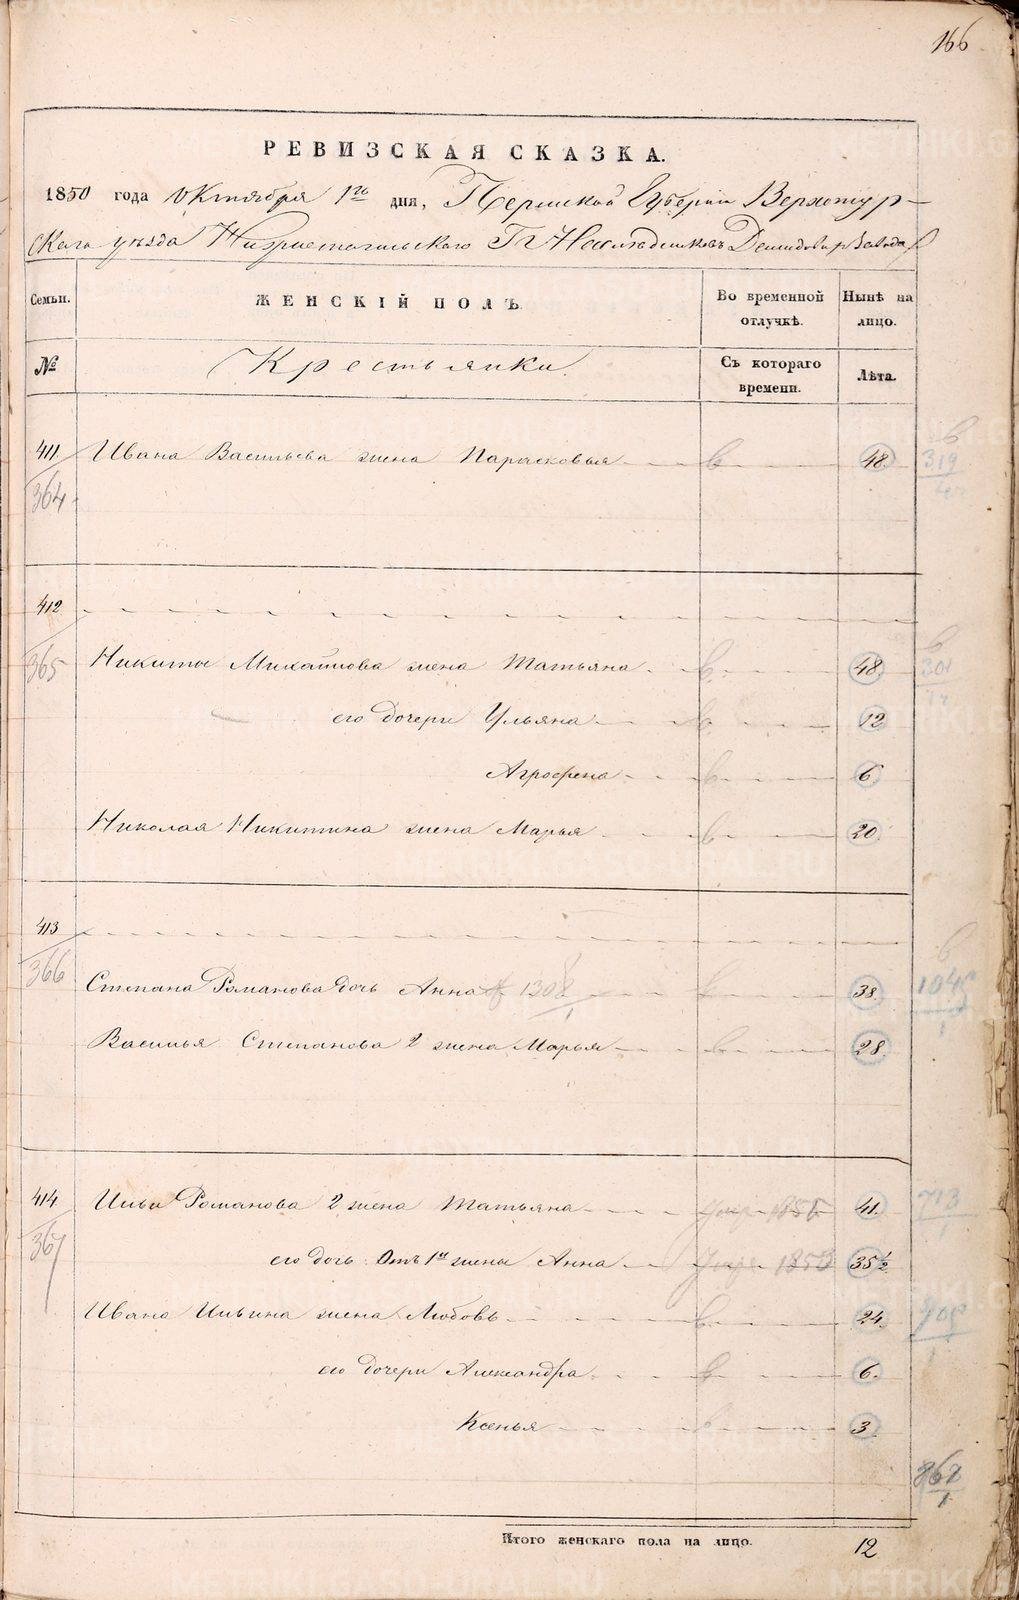 166
РЕВИЗСКАЯ СКАЗКА.
1850 года Октября 1го дня, Пермской Губернии Верхотур-
скаго уѣзда Нижнетагильскаго Гг Наслѣдниковъ Демидовыхъ Завода
Семьи. ЖЕНСКІЙ ПОЛЪ Во временной отлучкѣ. Нынѣ на лицо.
№ Крестьянки Съ котораго времени. Лѣта.
411 Ивана Васильева жена Парасковья 48
364
319
412
365 Никиты Михайлова жена Татьяна 48 301
его дочери Ульяна 12
Агрофена 6
Николая Никитина жена Марья 20
413
366 Степана Романова дочь Анна 1308 38 1045
Василья Степанова 2 жена Марья 28
414 Ильи Романова 2 жена Татьяна 41 713
367 его дочь отъ 1й жены Анна 1853 35½
Ивана Ильина жена Любовь 24
его дочери Александра 6
Ксенья 3
Итого женскаго пола на лицо. 12
METRIKI.GASO-URAL.RU